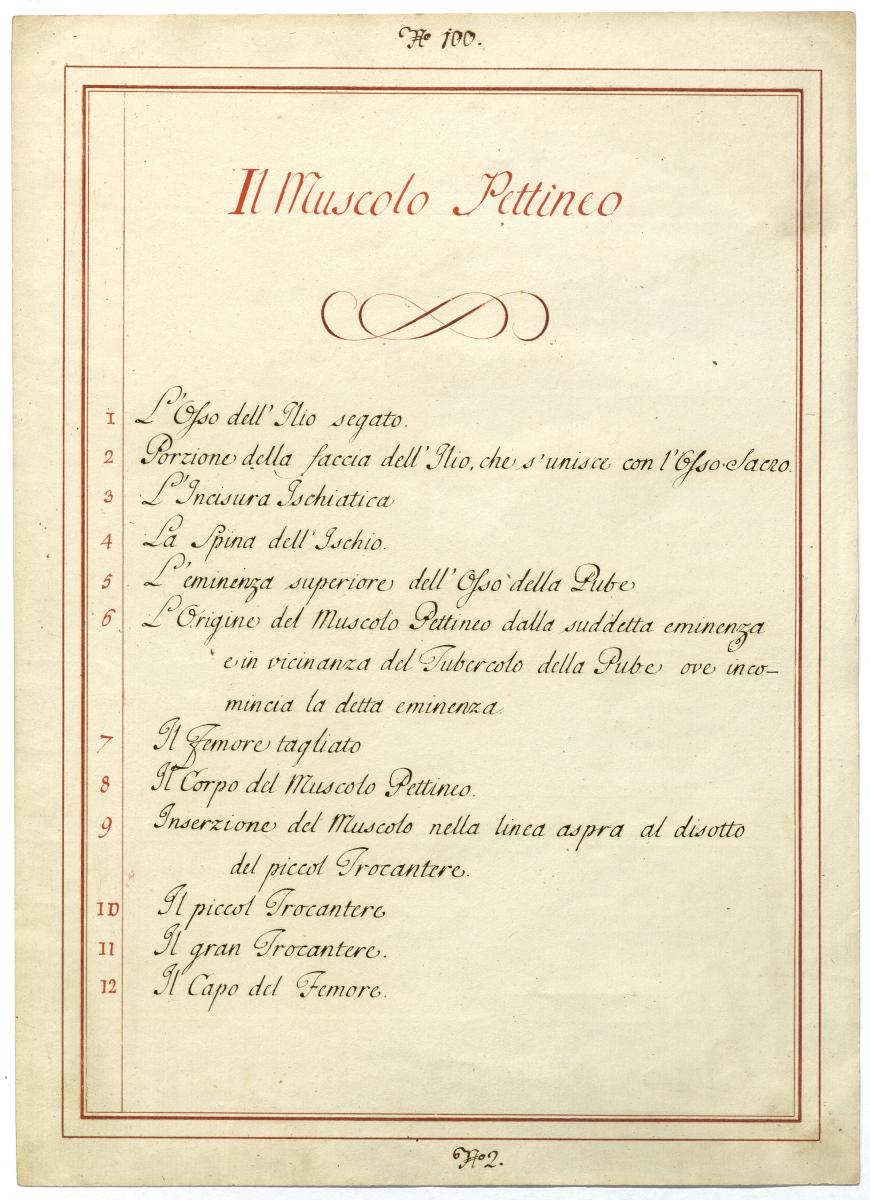 No 100.
Il Muscolo Pettineo
1 L'Osso dell'Ilio segato.
2 Porzione della faccia dell'Ilio, che s'unisce con l'Osso Sacro.
3 L'Incisura Ischiatica
4 La Spina dell'Ischio.
5 L'eminenza superiore dell'Osso della Pube
6 L'Origine del Muscolo Pettineo dalla suddetta eminenza
e in vicinanza del Tubercolo della Pube ove inco-
mincia la detta eminenza.
7 Il Femore tagliato
8 Il Corpo del Muscolo Pettineo.
9 Inserzione del Muscolo nella linea aspra al disotto
del piccol Trocantere.
10 Il piccol Trocantere
11 Il gran Trocantere.
12 Il Capo del Femore.
No 2.